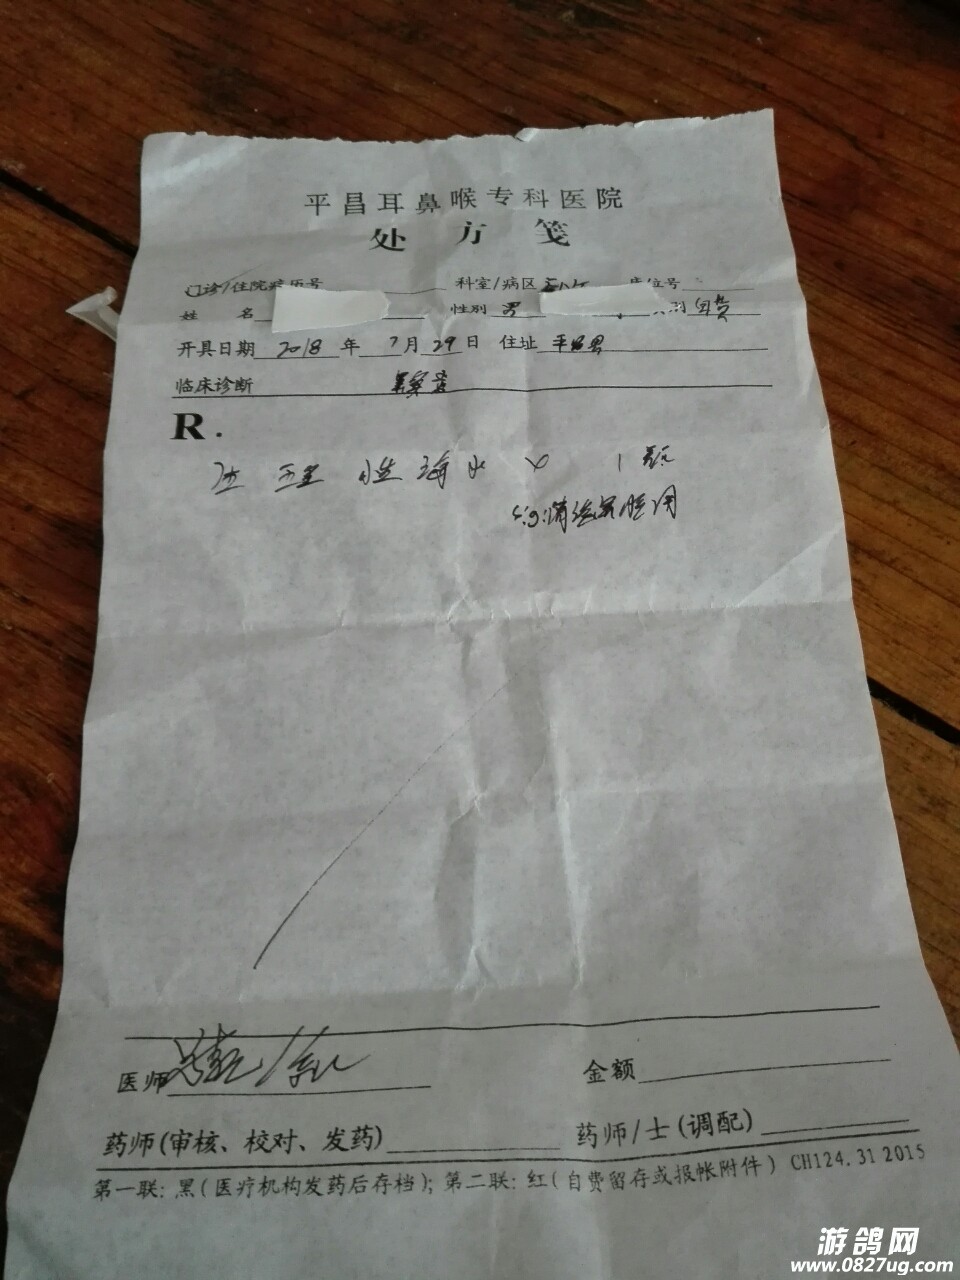 平昌耳鼻喉专科医院
处方笺
门诊/住院病历号 科室/病区 床位号
姓名 性别 男 别 自费
开具日期 2018 年 7 月 29 日 住址 平昌县
临床诊断 鼻窦炎
R.
生理性海水 x 1瓶
Sig:清洗鼻腔用
医师
金额
药师(审核、校对、发药) 药师/士(调配)
第一联:黑(医疗机构发药后存档);第二联:红(自费留存或报帐附件) CH124.31 2015
游鸽网
www.0827ug.com